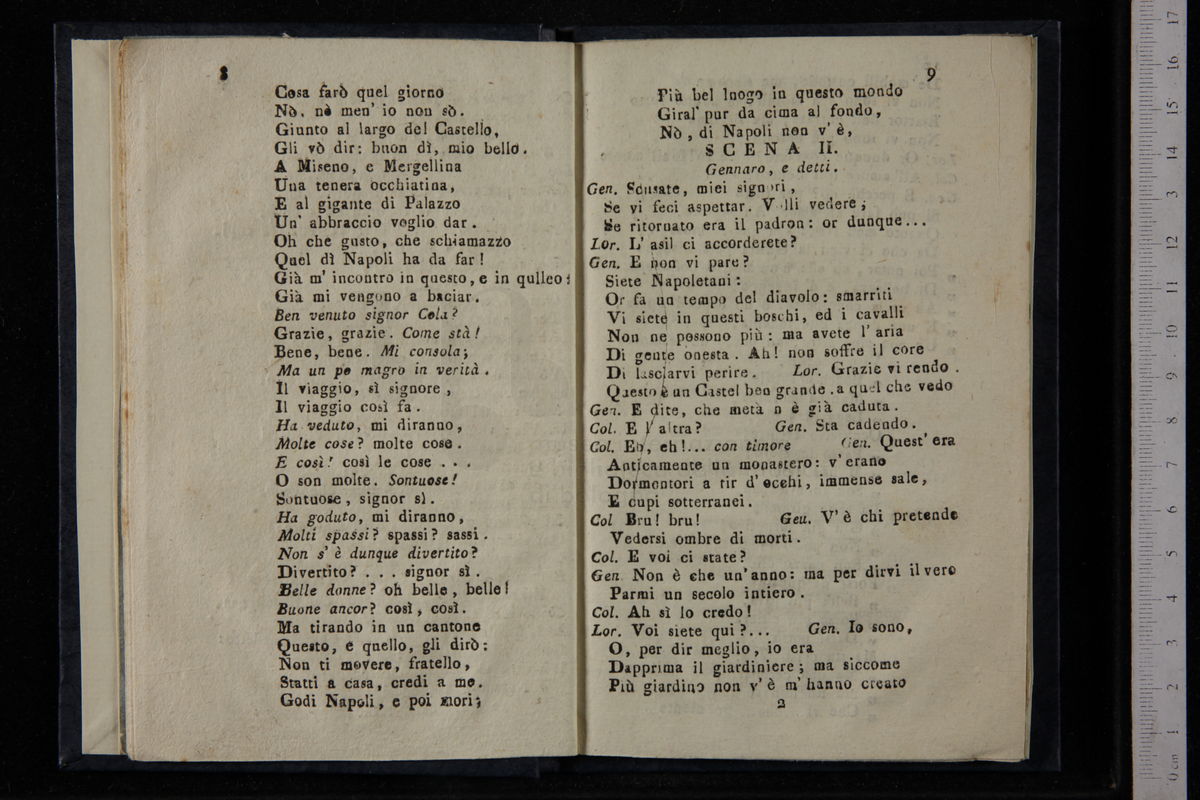 8
Cosa farò quel giorno
Nò, nè men' io non sò.
Giunto al largo del Castello,
Gli vò dir: buon dì, mio bello.
A Miseno, e Mergellina
Una tenera occhiatina,
E al gigante di Palazzo
Un' abbraccio voglio dar.
Oh che gusto, che schiamazzo
Quel dì Napoli ha da far!
Già m' incontro in questo, e in qulleo;
Già mi vengono a baciar.
Ben venuto signor Cola?
Grazie, grazie. Come stà!
Bene, bene. Mi consola;
Ma un po magro in verità.
Il viaggio, sì signore,
Il viaggio così fa.
Ha veduto, mi diranno,
Molte cose? molte cose.
E così! così le cose . . .
O son molte. Sontuose!
Sontuose, signor sì.
Ha goduto, mi diranno,
Molti spassi? spassi? sassi.
Non s' è dunque divertito?
Divertito? . . . signor sì.
Belle donne? oh belle, belle!
Buone ancor? così, così.
Ma tirando in un cantone
Questo, e quello, gli dirò:
Non ti movere, fratello,
Statti a casa, credi a me.
Godi Napoli, e poi mori;
9
Più bel luogo in questo mondo
Giral' pur da cima al fondo,
Nò, di Napoli non v' è,
SCENA II.
Gennaro, e detti.
Gen. Scusate, miei signori,
Se vi feci aspettar. Volli vedere;
Se ritornato era il padron: or dunque...
Lor. L' asil ci accorderete?
Gen. E non vi pare?
Siete Napoletani:
Or fa un tempo del diavolo: smarriti
Vi siete in questi boschi, ed i cavalli
Non ne possono più: ma avete l' aria
Di gente onesta. Ah! non soffre il core
Di lasciarvi perire. Lor. Grazie vi rendo.
Questo è un Castel ben grande. a quel che vedo
Gen. E dite, che metà n è già caduta.
Col. E l' altra? Gen. Sta cadendo.
Col. Eh, eh!... con timore Gen. Quest' era
Anticamente un monastero: v' erano
Dormentori a tir d' occhi, immense sale,
E cupi sotterranei.
Col Bru! bru! Geu. V' è chi pretende
Vedersi ombre di morti.
Col. E voi ci state?
Gen Non è che un' anno: ma per dirvi il vero
Parmi un secolo intiero.
Col. Ah sì lo credo!
Lor. Voi siete qui?... Gen. Io sono,
O, per dir meglio, io era
Dapprima il giardiniere; ma siccome
Più giardino non v' è m' hanno creato
2
17
16
15
14
13
12
11
10
9
8
7
6
5
4
3
2
1
0 cm